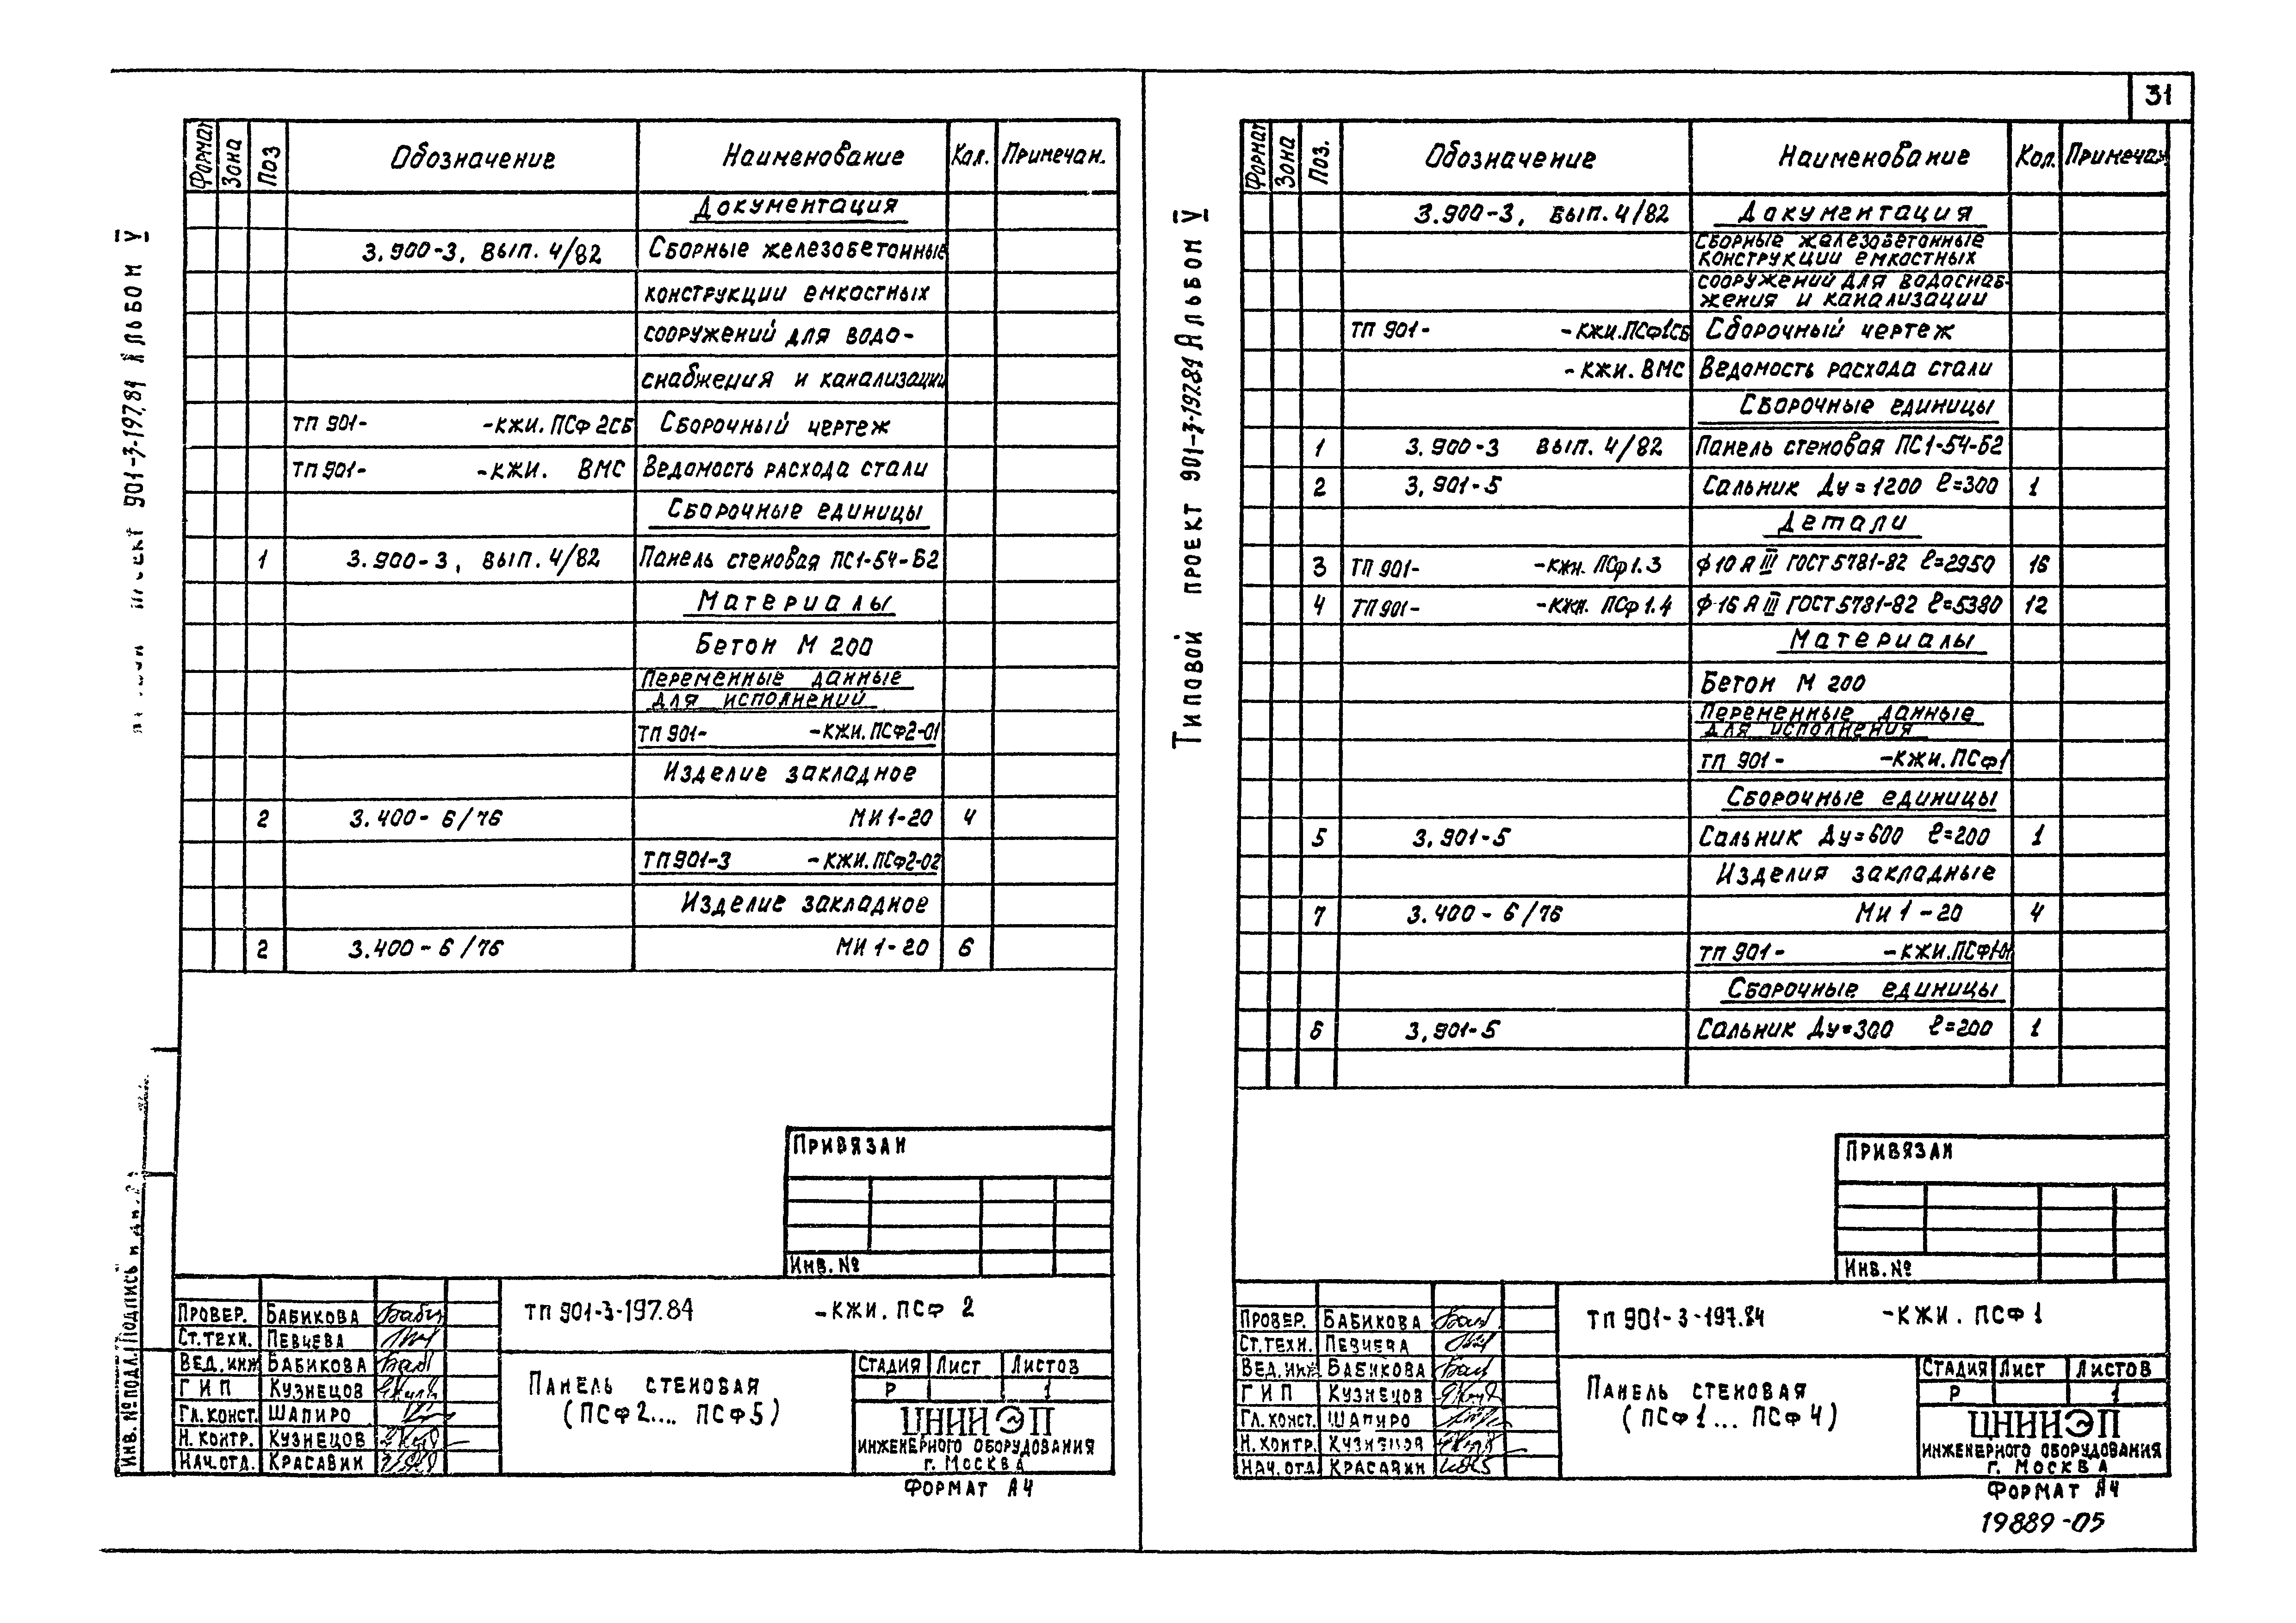 31
Альбом V
901-3-197.84
Формат Зона Поз Обозначение Наименование Кол. Примечан.
Документация
3.900-3, вып. 4/82 Сборные железобетонные
конструкции емкостных
сооружений для водо-
снабжения и канализации
ТП 901- -КЖИ.ПСФ2СБ Сборочный чертеж
ТП 901- -КЖИ. ВМС Ведомость расхода стали
Сборочные единицы
1 3.900-3, вып. 4/82 Панель стеновая ПС1-54-Б2
Материалы
Бетон М 200
Переменные данные
для исполнений
ТП 901- -КЖИ.ПСФ2-01
Изделие закладное
2 3.400-6/76 МИ 1-20 4
ТП 901-3 -КЖИ.ПСФ2-02
Изделие закладное
2 3.400-6/76 МИ 1-20 6
Привязан
Инв. №
Инв. № подл. Подпись и
ТП 901-3-197.84 -КЖИ. ПСФ 2
Провер. Бабикова
Ст.техн. Певцева
Вед. инж Бабикова
ГИП Кузнецов
Гл. конст. Шапиро
Н. контр. Кузнецов
Нач. отд. Красавин
Панель стеновая
(ПСФ2... ПСФ5)
Стадия Лист Листов
Р 1
ЦНИИЭП
инженерного оборудования
г. Москва
Формат А4
Типовой проект 901-3-197.84 Альбом V
Формат Зона Поз. Обозначение Наименование Кол. Примечан
3.900-3, вып. 4/82 Документация
Сборные железобетонные
конструкции емкостных
сооружений для водоснаб-
жения и канализации
ТП 901- -КЖИ.ПСФ1СБ Сборочный чертеж
-КЖИ. ВМС Ведомость расхода стали
Сборочные единицы
1 3.900-3 вып. 4/82 Панель стеновая ПС1-54-Б2
2 3.901-5 Сальник Ду=1200 ℓ=300 1
Детали
3 ТП 901- -КЖИ. ПСФ1.3 ф10 А III ГОСТ 5781-82 ℓ=2950 16
4 ТП 901- -КЖИ. ПСФ1.4 ф16 А III ГОСТ 5781-82 ℓ=5380 12
Материалы
Бетон М 200
Переменные данные
для исполнения
ТП 901- -КЖИ.ПСФ1
Сборочные единицы
5 3.901-5 Сальник Ду=600 ℓ=200 1
Изделия закладные
7 3.400-6/76 МИ 1-20 4
ТП 901- -КЖИ.ПСФ1-01
Сборочные единицы
6 3.901-5 Сальник Ду=300 ℓ=200 1
Привязан
Инв. №
ТП 901-3-197.84 -КЖИ. ПСФ 1
Провер. Бабикова
Ст.техн. Певцева
Вед. инж. Бабикова
ГИП Кузнецов
Гл. конст. Шапиро
Н. контр. Кузнецов
Нач. отд. Красавин
Панель стеновая
(ПСФ1... ПСФ4)
Стадия Лист Листов
Р 1
ЦНИИЭП
инженерного оборудования
г. Москва
Формат А4
19889-05